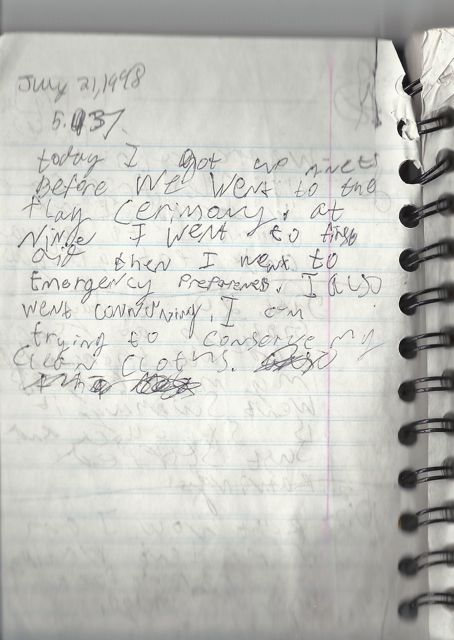 July 21, 1998
5:137.
today I got up minets
before we went to the
flag cerimony. at
Nine I went to first
aid then I went to
Emergency Preparenes. I also
went connuning. I am
trying to conserve my
Clean Cloths.